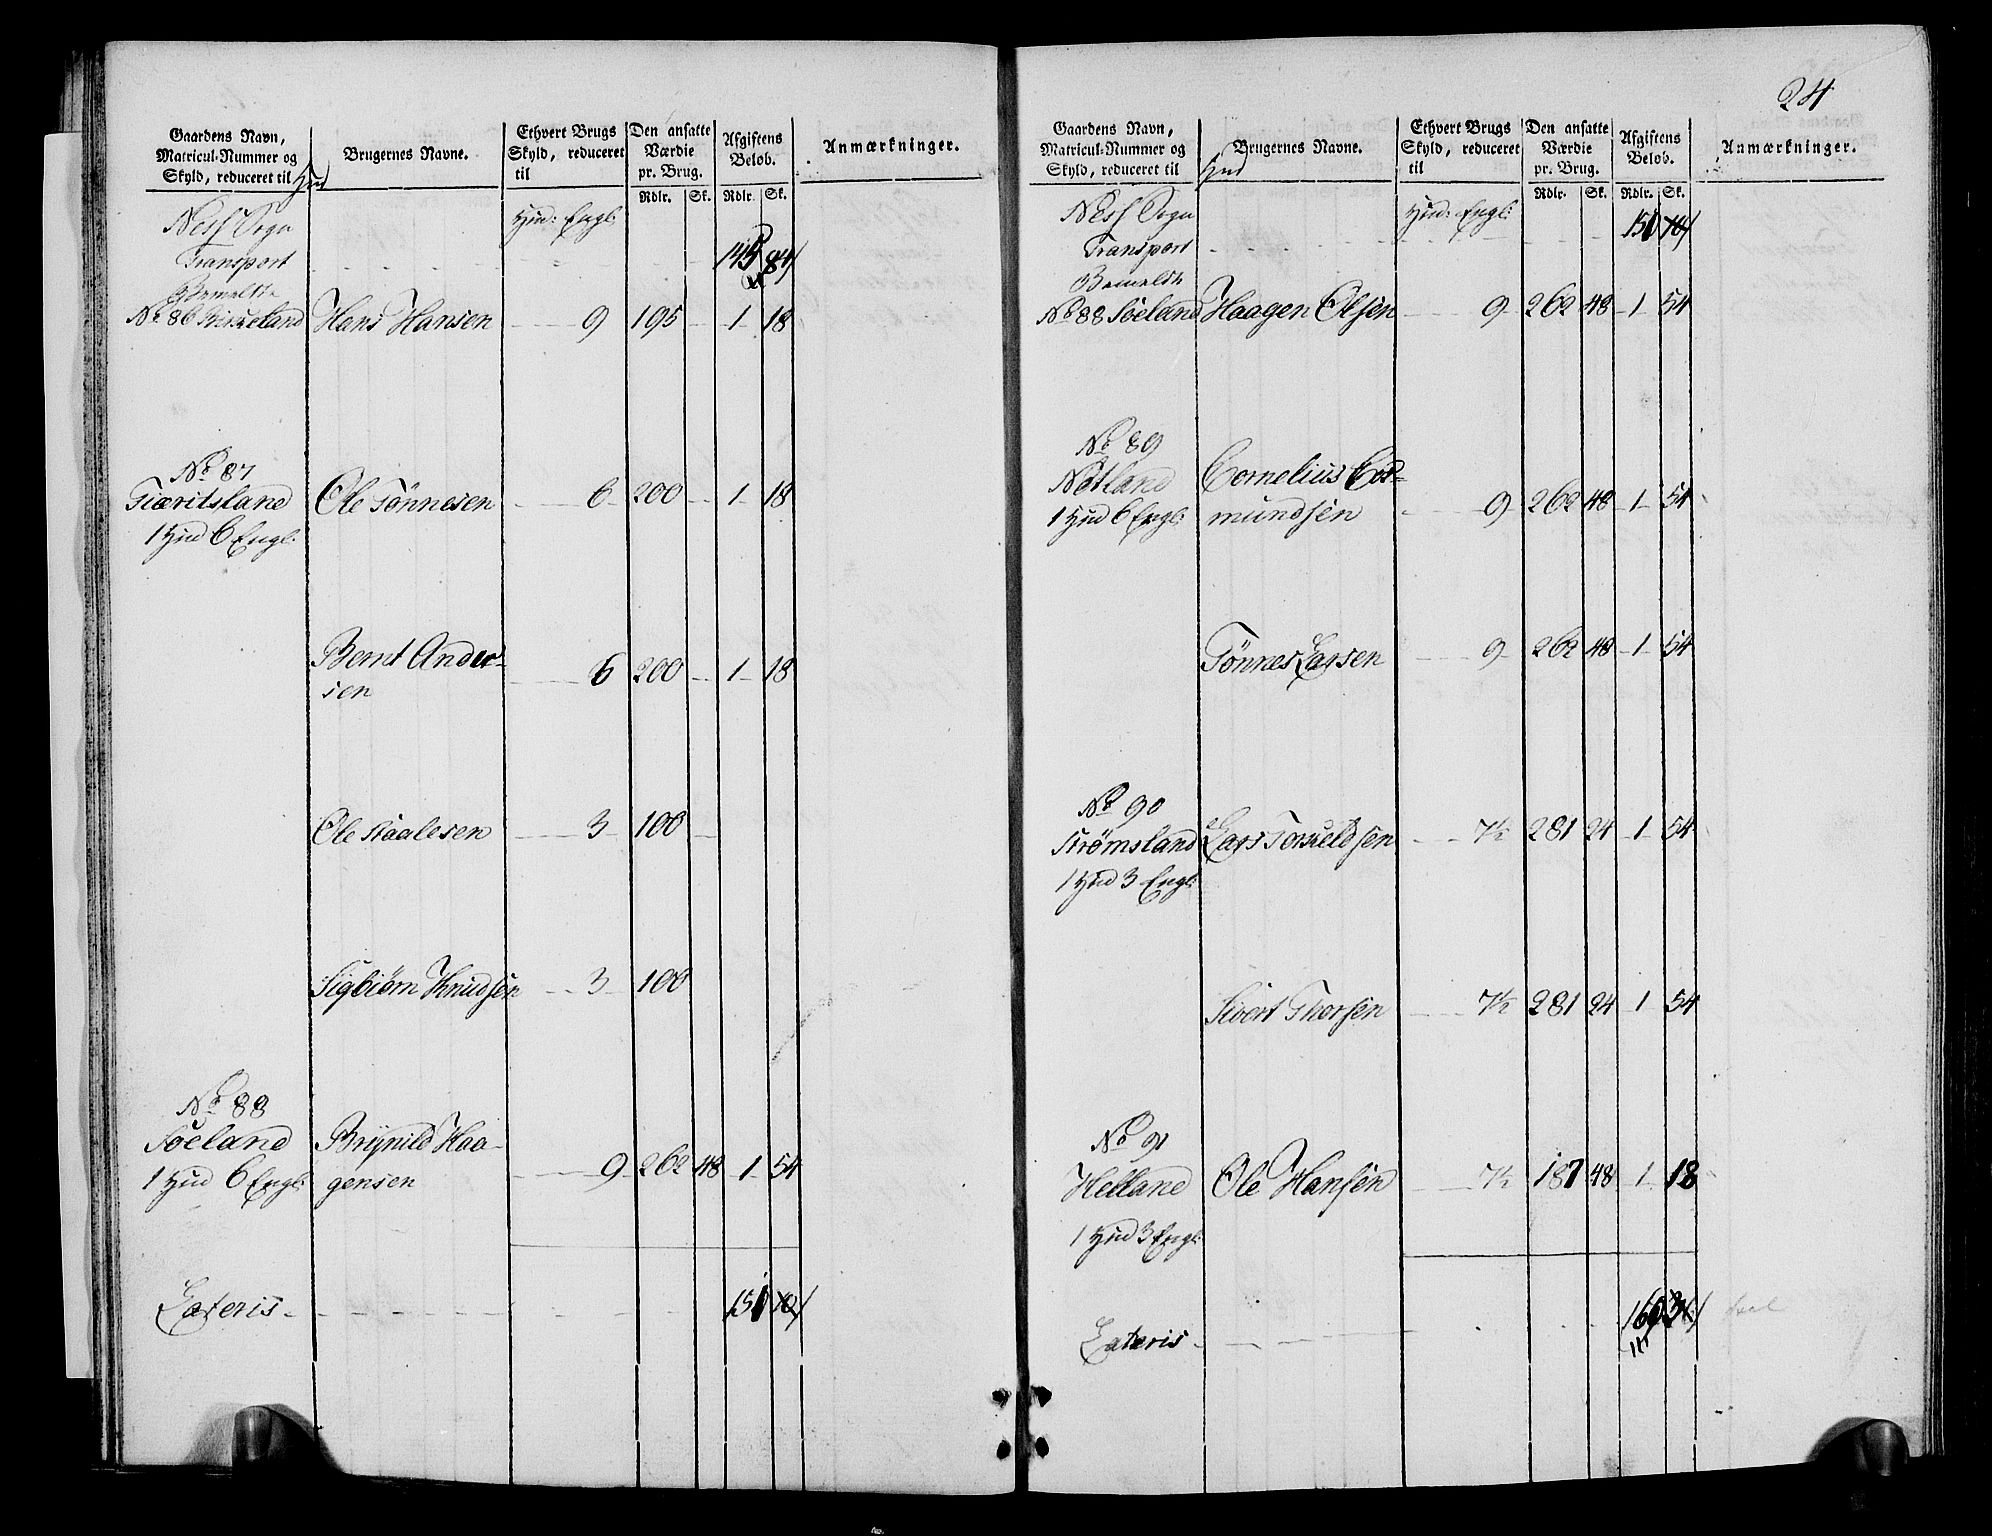 Gaardens Navn,
Matricul-Nummer og
Skyld, reduceret til Hud
Brugernes Navne.
Ethvert Brugs
Skyld, reduceret
til
Den ansatte
Værdie
pr. Brug.
Rdlr. Sk.
Afgiftens
Beløb.
Rdlr. Sk.
Anmærkninger.
Hud: Engl:
Ness Sogn
Transport 145 84
Bemeldte
No 86 Birkeland Hans Hansen 9 195 1 18
No 87
Fiæritsland Ole Tönnesen 6 200 1 18
1 Hud 6 Engl:
Bernt Ander- 6 200 1 18
sen
Ole Staalesen 3 100
Sigbiørn Knudsen 3 100
No 88
Søeland Brynild Haa-
1 Hud 6 Engl: gensen 9 262 48 1 54
Lateris 151 70
24
Gaardens Navn,
Matricul-Nummer og
Skyld, reduceret til Hud
Brugernes Navne.
Ethvert Brugs
Skyld, reduceret
til
Den ansatte
Værdie
pr. Brug.
Rdlr. Sk.
Afgiftens
Beløb.
Rdlr. Sk.
Anmærkninger.
Hud: Engl:
Ness Sogn
Transport 151 70
Bemeldte
No 88 Søeland Haagen Olsen 9 262 48 1 54
No 89
Nøtland Cornelius
1 Hud 6 Engl: mundsen 9 262 48 1 54
Tönnes Larsen 9 262 48 1 54
No 90
Strømsland Lars Torkeldsen 7½ 281 24 1 54
1 Hud 3 Engl:
Sivert Thorsen 7½ 281 24 1 54
No 91
Helland Ole Hansen 7½ 187 48 1 18
1 Hud 3 Engl:
Lateris